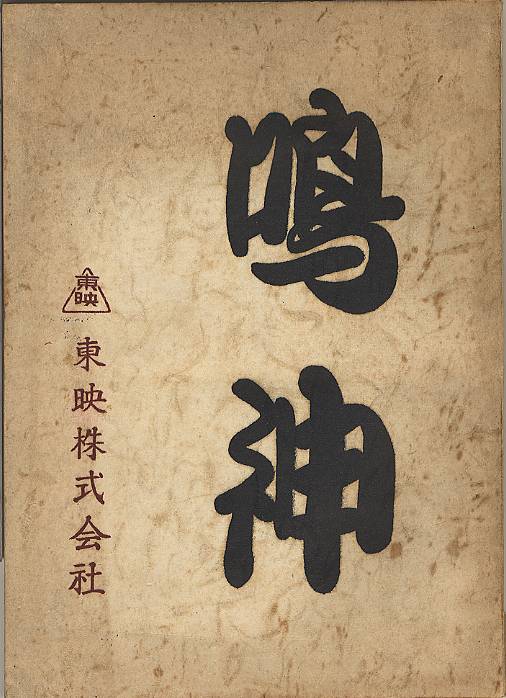 鳴神
東映
東映株式会社